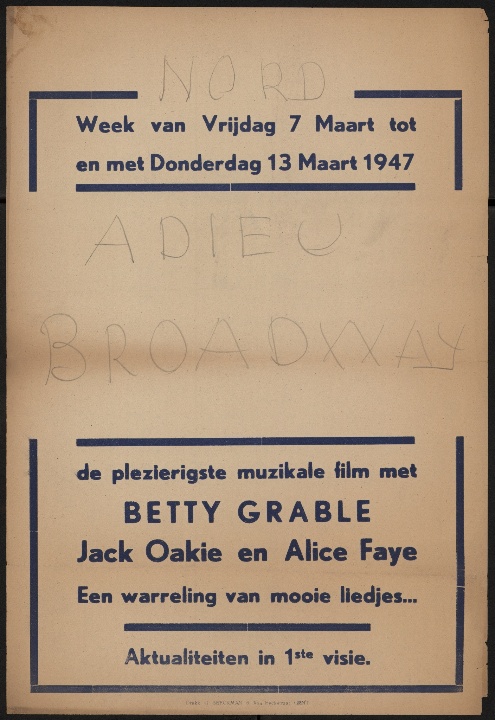 NORD
Week van Vrijdag 7 Maart tot
en met Donderdag 13 Maart 1947
ADIEU
BROADWAY
de plezierigste muzikale film met
BETTY GRABLE
Jack Oakie en Alice Faye
Een warreling van mooie liedjes...
Aktualiteiten in 1ste visie.